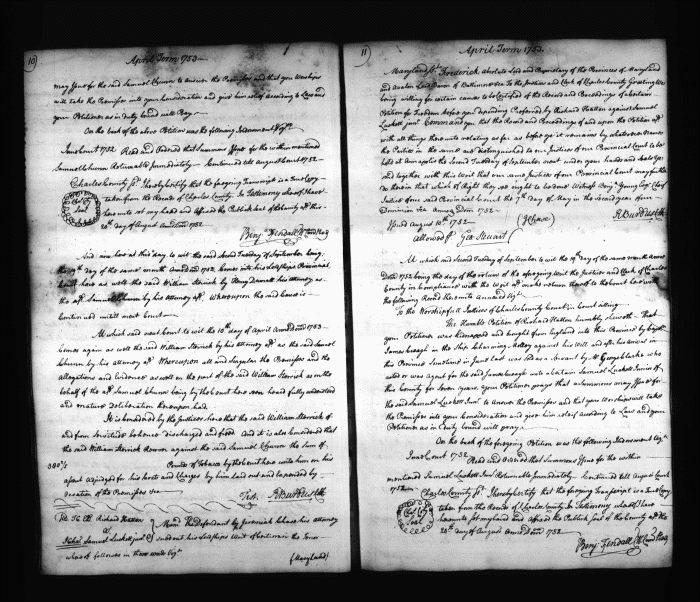 10
April Term 1753
may Issue for the said Samuel Chunn to answer the Premises and that your Worships
will take the Premises into your consideration and give him relief According to Law and
your Petitioner as in duty bound will Pray
On the back of the above Petition was the following Indorsement
June Court 1752. Read and Ordered that Summons Issue for the within mentioned
Samuel Chunn Returnable Immediately - Continued till August Court 1752
Charles County Sct. I hereby Certify that the foregoing Transcript is a True Copy
taken from the Records of Charles County. In Testimony whereof I have
hereunto set my hand and affixed the Publick Seal of the County aforesaid this
24th day of August Anno Dom 1752
Chas. Coty
Seal
Benj. Fendall
And now here at this day to wit the second Tuesday of September being
the day of the same month Anno Dom 1752 comes into his Lordships Provincial
Court here as well the said William Storrick by his attorney as
the said Samuel Chunn by his attorney Whereupon the said Cause is
Continued untill next Court
At which said next Court to wit the 10th day of April Anno Dom 1753
Comes again as well the said William Storrick by his attorney as the said Samuel
Chunn by his attorney Whereupon all and singular the Premises and the
allegations and Evidences as well on the part of the said William Storrick as on the
behalf of the Samuel Chunn being by the Court here seen heard fully understood
and mature deliberation thereupon had
It is Considered by the Justices here that the said William Storrick of
and from his Servitude be hence discharged and freed And it is also Considered that
the said William Storrick Recover against the said Samuel Chunn the sum of
Pounds of Tobacco by the Court here unto him on his
assent adjudged for his Costs and Charges by him laid out and Expended by
occasion of the Premises
Test. R Burdus
Richard Hatton
Samuel Luckett
the Defendant by Jeremiah Chase his attorney
sued out his Lordships Writ of Certiorari the Tenor
whereof follows in these words
(Maryland)
11
April Term 1753.
Maryland Sct. Frederick absolute Lord and Proprietary of the Provinces of Maryland
and Avalon Lord Baron of Baltimore &ca To the Justices and Clerk of Charles County Greeting We
being willing for certain causes to be Certified of the Record and Proceedings of a certain
Petition for Freedom before you depending Preferred by Richard Hatton against Samuel
Luckett Junr Command you that the Record and Proceedings of and upon the Petition
with all things thereunto relating as far as before you it remains by whatsoever Names
the Parties in the same are distinguished to our Justices of our Provincial Court to be
held at Annapolis the second Tuesday of September next under your hands and Seals you
send together with this Writ that our same Justices of our Provincial Court may further
do therein that which of Right they see ought to be done Witness Benj. Young Esq. Chief
Justice of our said Provincial Court the 7th day of May in the second year of our
Dominion &ca Anno Dom 1752
Issued August 10th 1752
J Chase
R Burdus
Allowed Geo Steuart
At which said Second Tuesday of September to wit the day of the same month Anno
Dom 1752 being the day of the return of the aforegoing Writ the Justices and Clerk of Charles
County in Compliance with the Writ make return thereof to the Court here with
the following Record thereunto annexed
To the Worshipfull Justices of Charles County in Court sitting
The Humble Petition of Richard Hatton humbly sheweth That
your Petitioner was kidnapped and brought from England into this Province by Capt
James Creagh in the Ship Adventure against his Will and after his arrival in
this Province Sometime in June last was sold as a Servant by Mr George Clarke who
acted as agent for the said James Creagh unto a certain Samuel Luckett Junior of
this County for Seven years your Petitioner prays that a Summons may Issue for
the said Samuel Luckett Junr to answer the Premises and that your Worships will take
the Premises into your Consideration and give him relief according to Law and your
Petitioner as in duty bound will pray
On the back of the foregoing Petition was the following Indorsement
June Court 1752
Read and Ordered that Summons Issue for the within
mentioned Samuel Luckett Junr Returnable Immediately Continued till August Court
1752
Charles County Sct. I hereby Certify that the foregoing Transcript is a True Copy
taken from the Records of Charles County In Testimony whereof I have
hereunto set my hand and affixed the Publick Seal of the County this
24th day of August Anno Dom 1752
Chas. Coty
Seal
Benj. Fendall